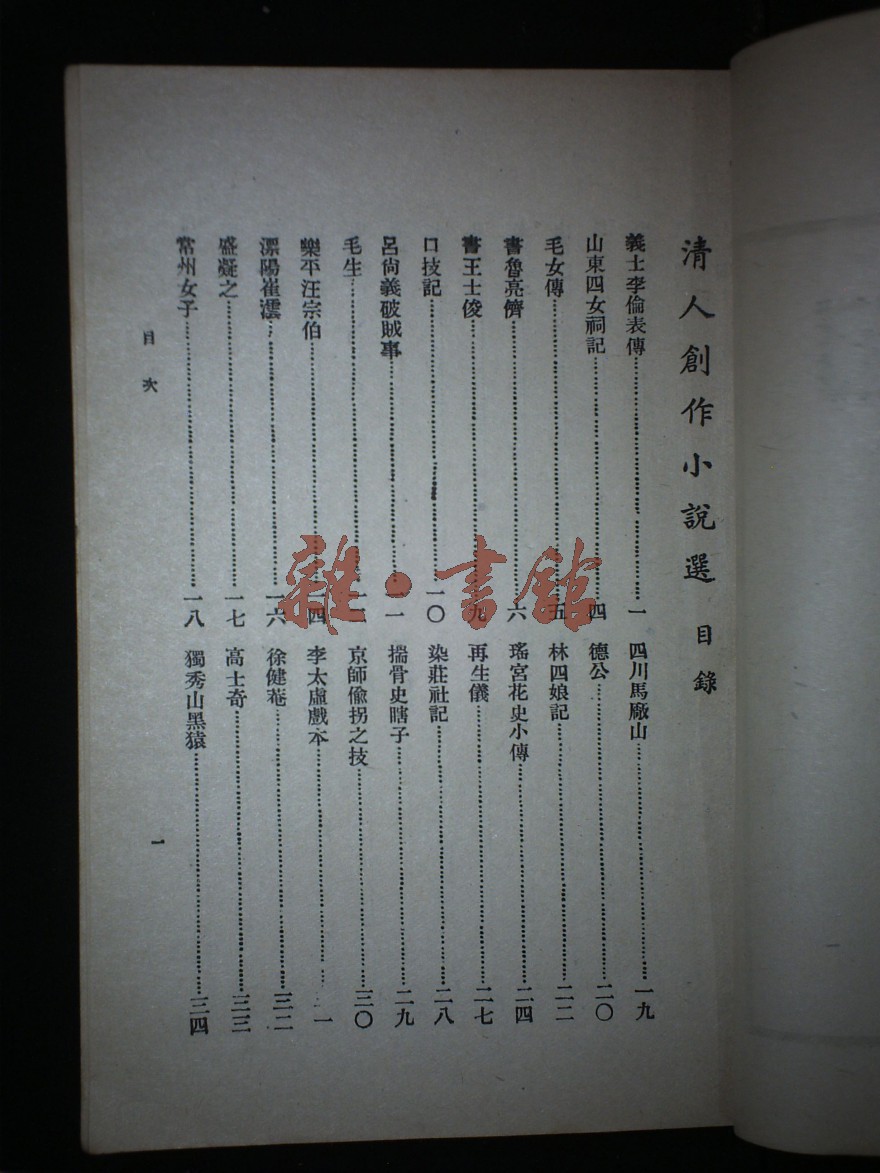 清人創作小說選 目錄
義士李倫表傳……一
山東四女祠記……四
毛女傳……五
書魯亮儕……六
書王士俊……九
口技記……一〇
呂尙義破賊事……一一
毛生……
樂平汪宗伯……四
溧陽崔澐……一六
盛凝之……一七
常州女子……一八
四川馬廠山……一九
德公……二〇
林四娘記……二二
瑤宮花史小傳……二四
再生儀……二七
染莊社記……二八
揣骨史瞎子……二九
京師偸拐之技……三〇
李太虛戲本……一
徐健菴……三二
高士奇……三三
獨秀山黑猿……三四
目次
一
雜·書館